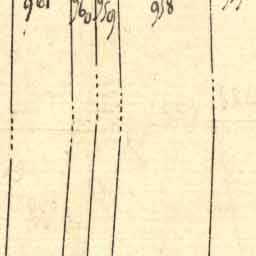 961 960 959 958